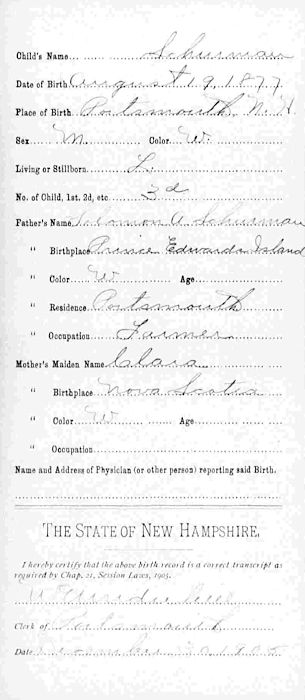 Child's Name Schurman
Date of Birth August 19, 1877
Place of Birth Portsmouth, N. H.
Sex M. Color W.
Living or Stillborn L.
No. of Child, 1st. 2d, etc. 3d
Father's Name Solomon A Schurman
" Birthplace Prince Edwards Island
" Color W Age
" Residence Portsmouth
" Occupation Farmer
Mother's Maiden Name Clara
" Birthplace Nova Scotia
" Color W Age
" Occupation
Name and Address of Physician (or other person) reporting said Birth.
THE STATE OF NEW HAMPSHIRE.
I hereby certify that the above birth record is a correct transcript as
required by Chap. 21, Session Laws, 1905.
Clerk of Portsmouth
Date 1905